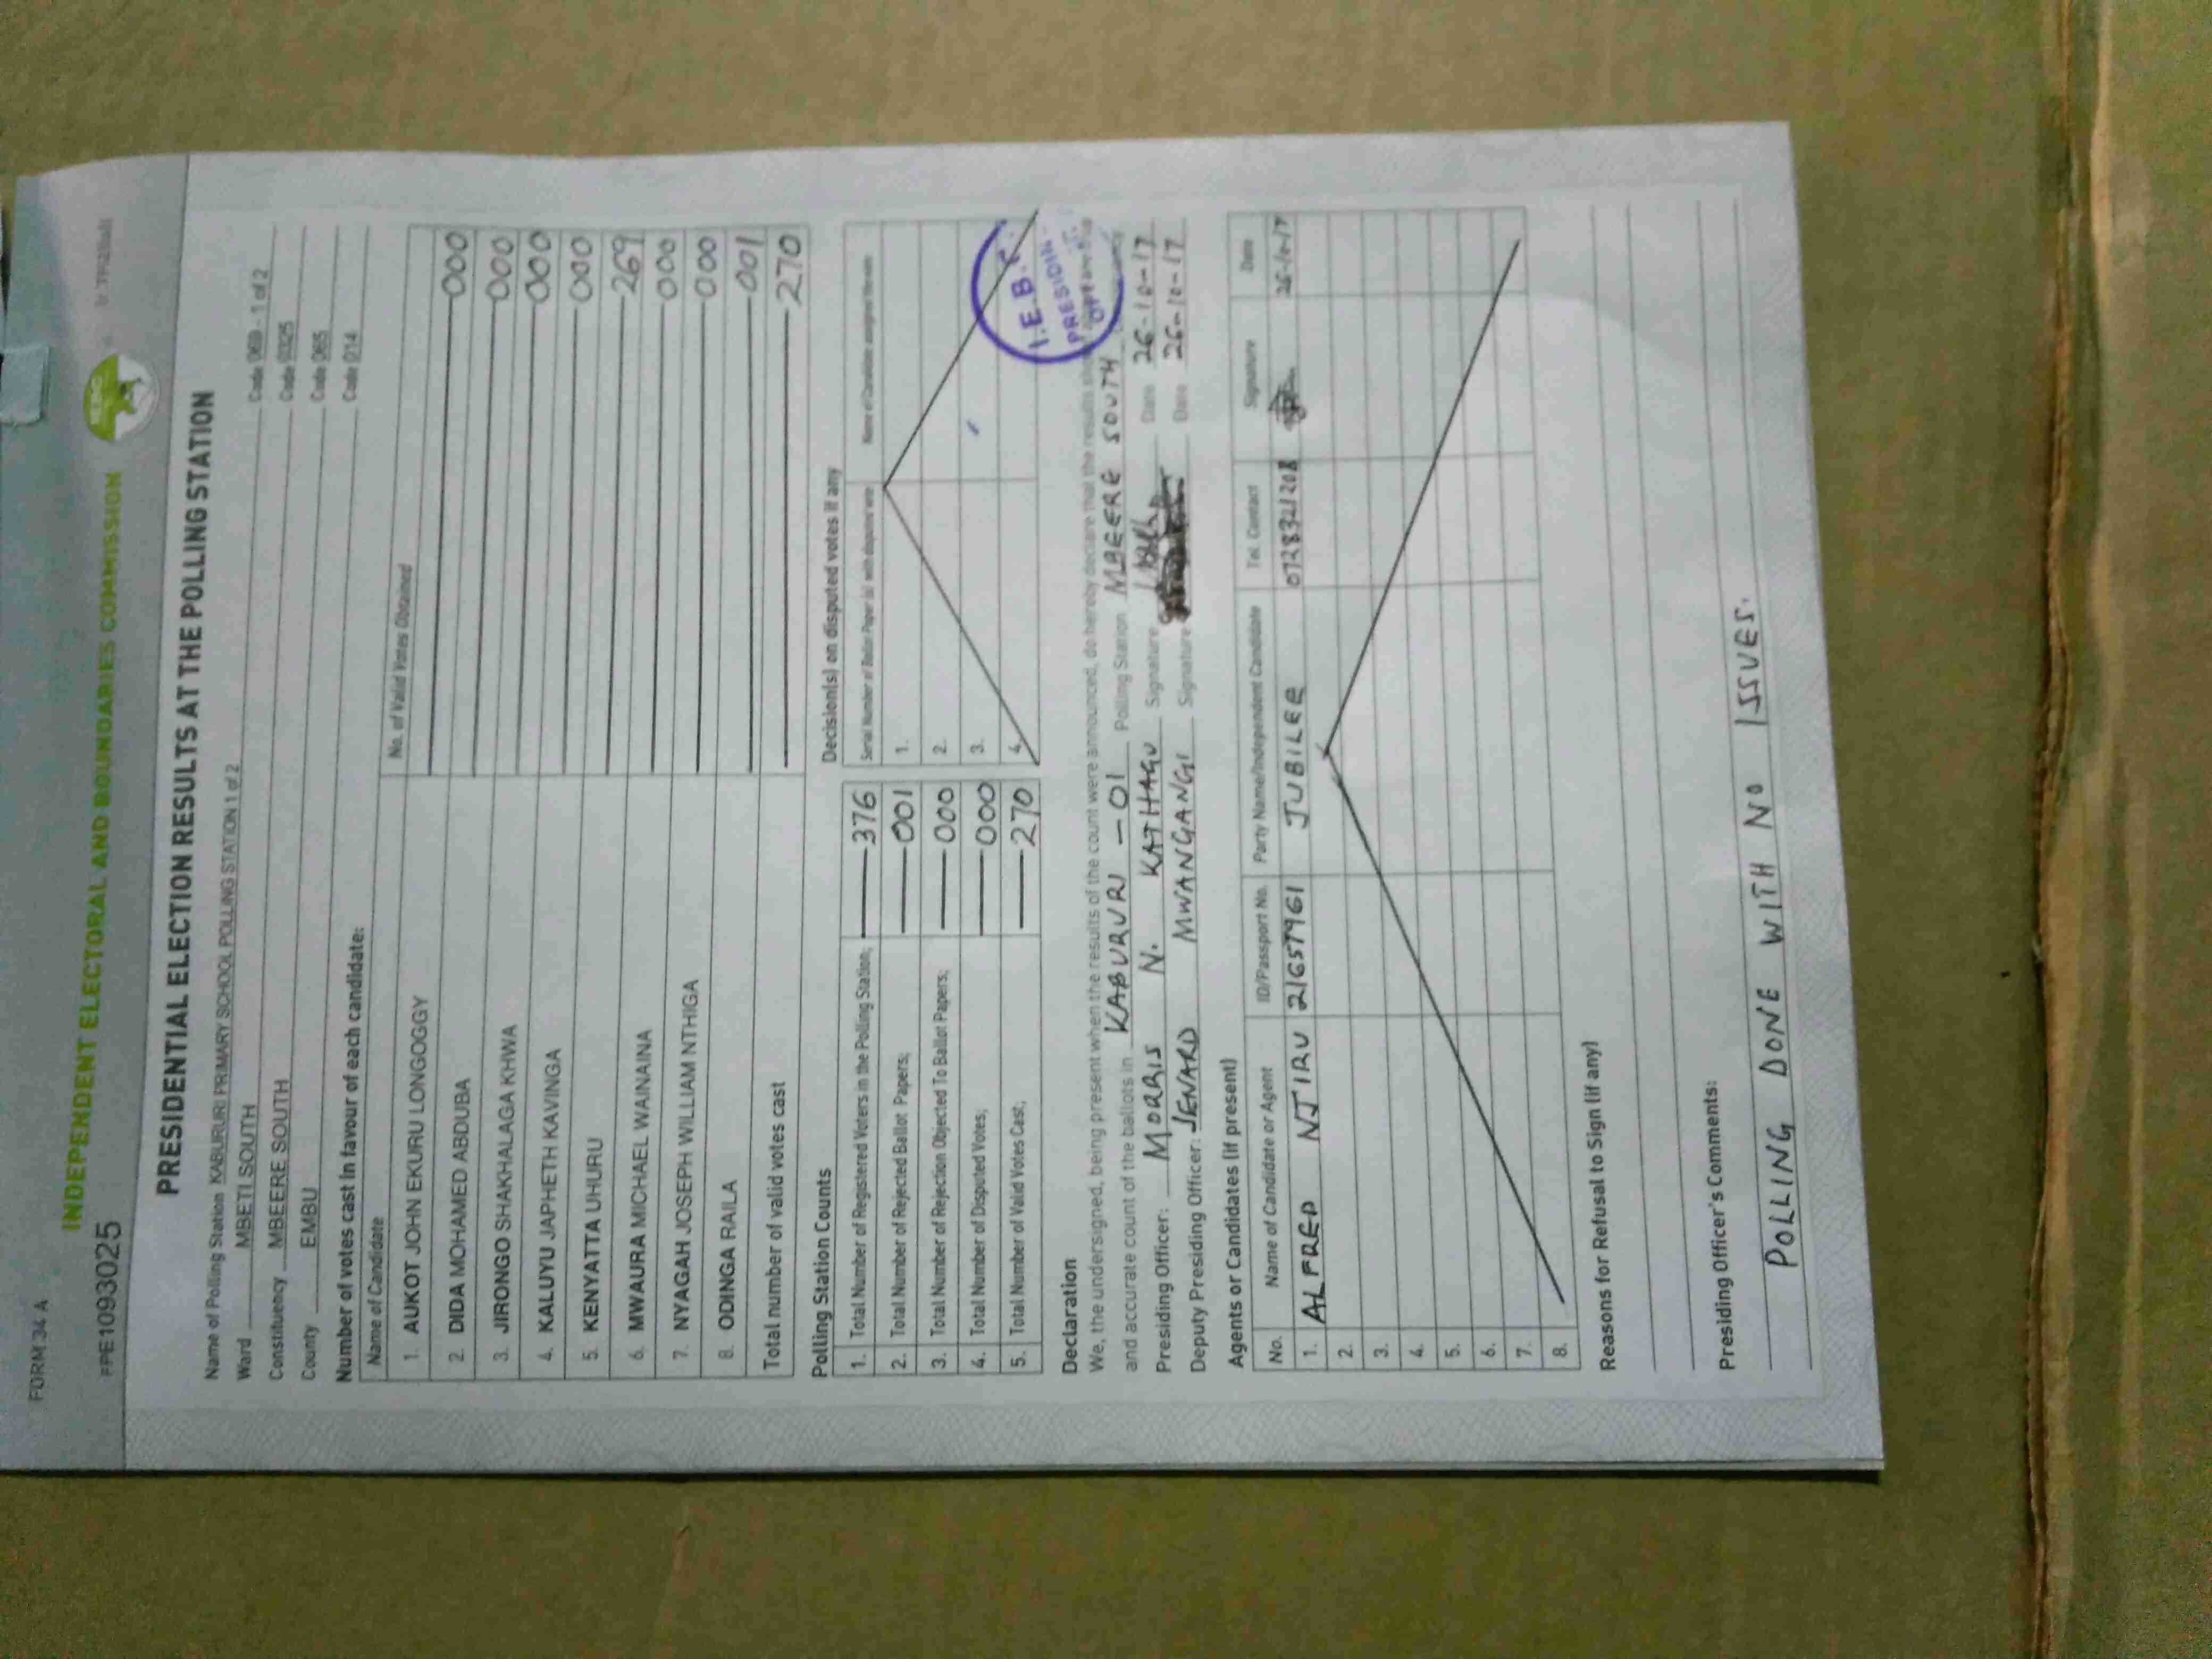 FORM 34 A
INDEPENDENT ELECTORAL AND BOUNDARIES COMMISSION
PPE1093025
PRESIDENTIAL ELECTION RESULTS AT THE POLLING STATION
Name of Polling Station KABURURI PRIMARY SCHOOL POLLING STATION 1 of 2 Code 069 - 1 of 2
Ward MBETI SOUTH Code 0325
Constituency MBEERE SOUTH Code 065
County EMBU Code 014
Number of votes cast in favour of each candidate:
Name of Candidate No. of Valid Votes Obtained
1. AUKOT JOHN EKURU LONGOGGY 000
2. DIDA MOHAMED ABDUBA 000
3. JIRONGO SHAKHALAGA KHWA 000
4. KALUYU JAPHETH KAVINGA 000
5. KENYATTA UHURU 269
6. MWAURA MICHAEL WAINAINA 000
7. NYAGAH JOSEPH WILLIAM NTHIGA 000
8. ODINGA RAILA 001
Total number of valid votes cast 270
Polling Station Counts
1. Total Number of Registered Voters in the Polling Station; 376
2. Total Number of Rejected Ballot Papers; 001
3. Total Number of Rejection Objected To Ballot Papers; 000
4. Total Number of Disputed Votes; 000
5. Total Number of Valid Votes Cast; 270
Decision(s) on disputed votes if any
Serial Number of Ballot Paper (s) with dispute
1.
2.
3.
4.
I.E.B.C.
PRESIDING
Declaration
We, the undersigned, being present when the results of the count were announced, do hereby declare that the results
and accurate count of the ballots in KABURURI - 01 Polling Station MBEERE SOUTH
Presiding Officer: MORRIS N. KATHAGU Signature Date 26-10-17
Deputy Presiding Officer: JENARD MWANGANGI Signature Date 26-10-17
Agents or Candidates (if present)
No. Name of Candidate or Agent ID/Passport No. Party Name/Independent Candidate Tel. Contact Signature Date
1. ALFRED NJIRU 21657961 JUBILEE 0728321208 26-10-17
2.
3.
4.
5.
6.
7.
8.
Reasons for Refusal to Sign (if any)
Presiding Officer's Comments:
POLLING DONE WITH NO ISSUES.